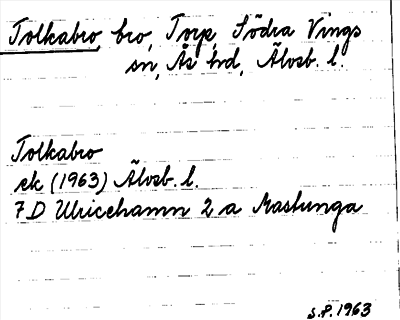 Tolkabro, bro, Torp, Södra Vings
sn, Ås hd, Älvsb. l.
Tolkabro
ek (1963) Älvsb. l.
7D Ulricehamn 2 a Mastunga
S.P. 1963